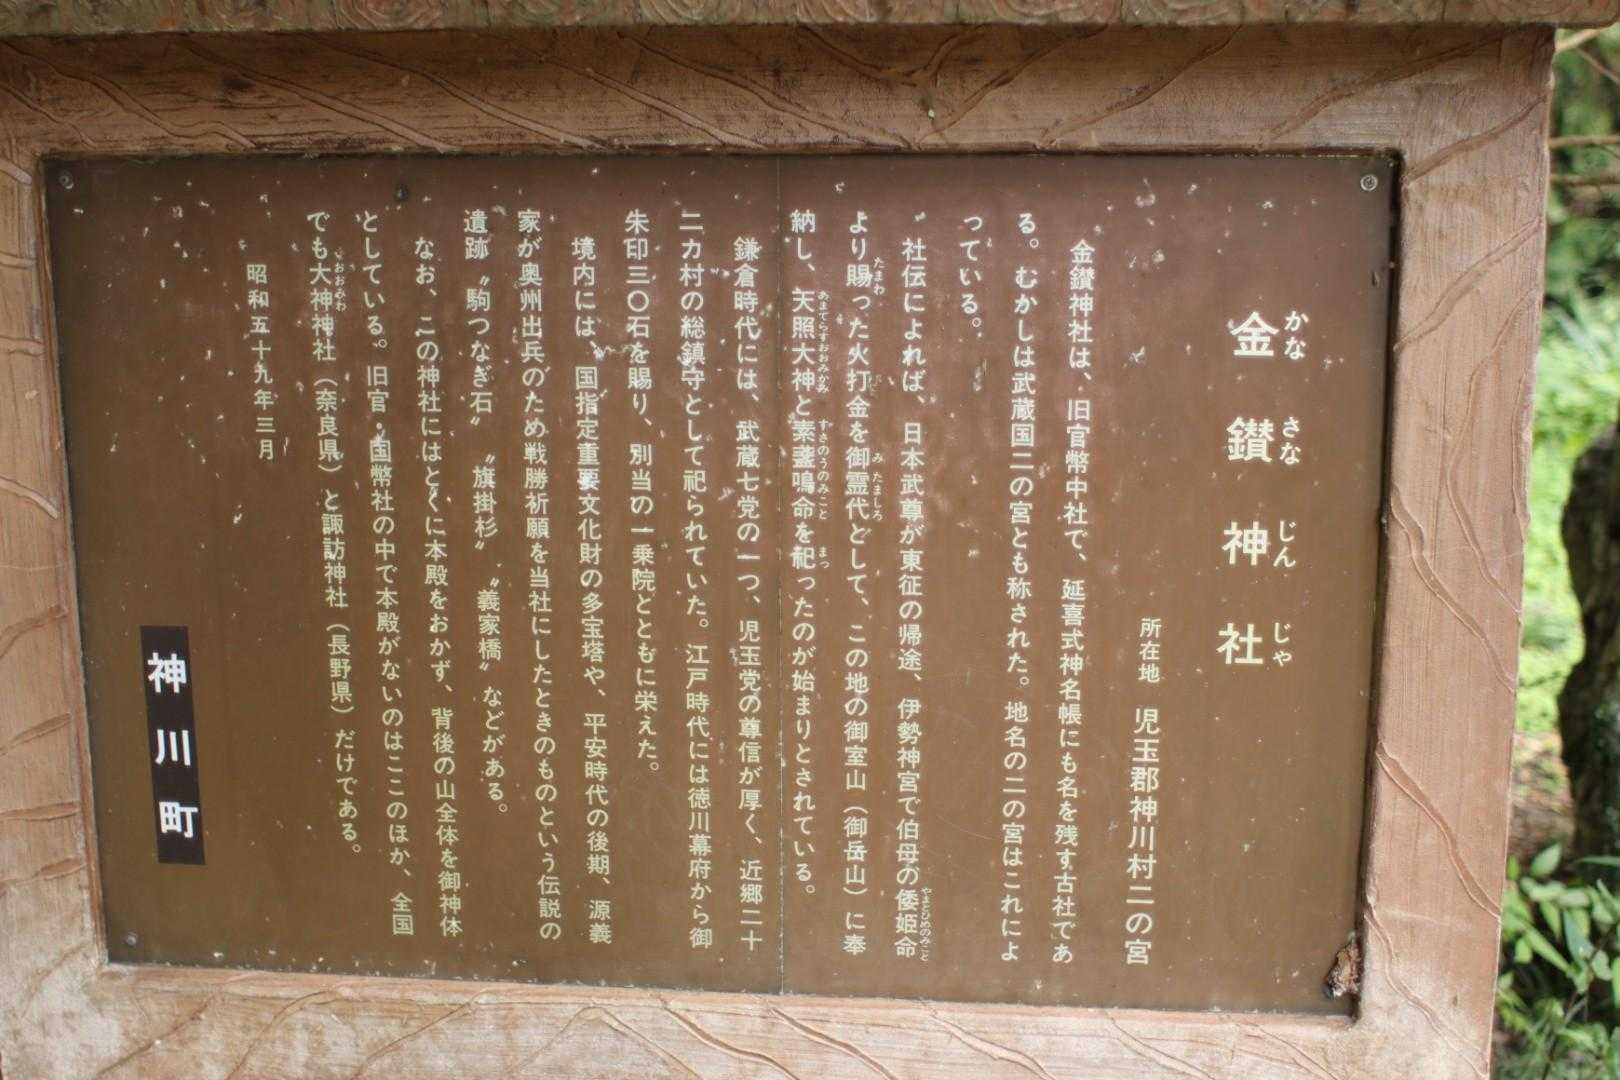 金鑚神社
かなさなじんじゃ
所在地 児玉郡神川村二の宮
金鑚神社は、旧官幣中社で、延喜式神名帳にも名を残す古社であ
る。むかしは武蔵国二の宮とも称された。地名の二の宮はこれによ
っている。
社伝によれば、日本武尊が東征の帰途、伊勢神宮で伯母の倭姫命
やまとひめのみこと
より賜った火打金を御霊代として、この地の御室山（御岳山）に奉
たまわ みたましろ
納し、天照大神と素盞嗚命を祀ったのが始まりとされている。
あまてらすおおみかみ すさのうのみこと まつ
鎌倉時代には、武蔵七党の一つ、児玉党の尊信が厚く、近郷二十
二カ村の総鎮守として祀られていた。江戸時代には徳川幕府から御
朱印三〇石を賜り、別当の一乗院とともに栄えた。
境内には、国指定重要文化財の多宝塔や、平安時代の後期、源義
家が奥州出兵のため戦勝祈願を当社にしたときのものという伝説の
遺跡〝駒つなぎ石〟〝旗掛杉〟〝義家橋〟などがある。
なお、この神社にはとくに本殿をおかず、背後の山全体を御神体
としている。旧官・国幣社の中で本殿がないのはここのほか、全国
でも大神神社（奈良県）と諏訪神社（長野県）だけである。
おおみわ
昭和五十九年三月
神川町